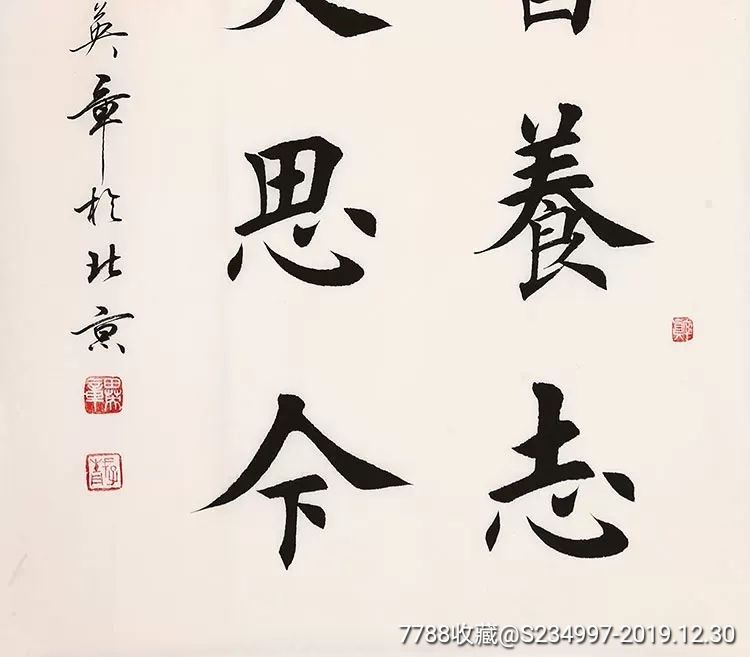 養志
思今
英章於北京
7788收藏@S234997-2019.12.30